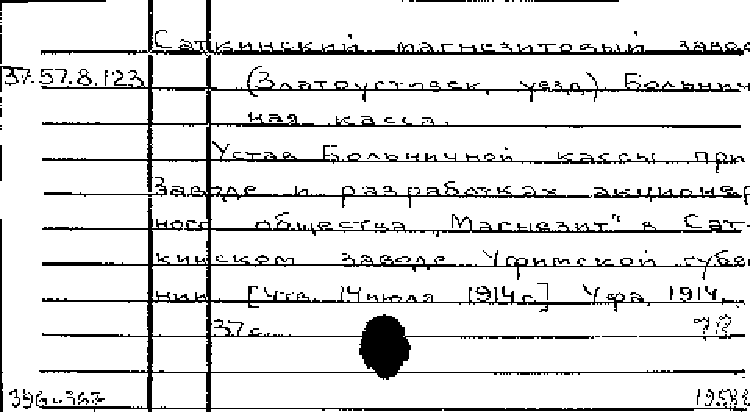 Саткинский магнезитовый завод
37.57.8.123 (Златоустовск. уезд) Больнич
ная касса.
Устав Больничной кассы при
Заводе и разработках акционер
ного общества „Магнезит" в Сат-
кинском заводе Уфимской губер
нии [Утв. 14 июля 1914 г.] Уфа, 1914.
37 с.